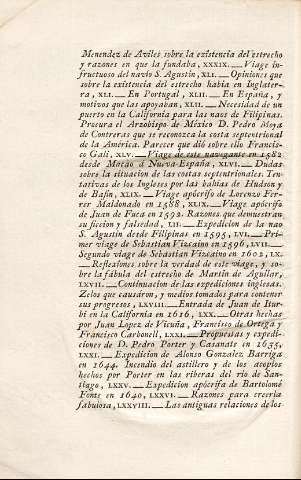 Menendez de Aviles sobre la existencia del estrecho
y razones en que la fundaba, XXXIX. — Viage in-
fructuoso del navío S. Agustin, XLI. — Opiniones que
sobre la existencia del estrecho habia en Inglater-
ra, XLI. — En Portugal, XLII. — En España, y
motivos que las apoyaban, XLII. — Necesidad de un
puerto en la California para las naos de Filipinas.
Procura el Arzobispo de México D. Pedro Moya
de Contreras que se reconozca la costa septentrional
de la América. Parecer que dió sobre ello Francis-
co Gali, XLV. — Viage de este navegante en 1582
desde Macao á Nueva España, XLVI. — Dudas
sobre la situacion de las costas septentrionales. Ten-
tativas de los Ingleses por las bahias de Hudson y
de Bafin, XLIX. — Viage apócrifo de Lorenzo Fer-
rer Maldonado en 1588, XLIX. — Viage apócrifo
de Juan de Fuca en 1592. Razones que demuestran
su ficcion y falsedad, LII. — Expedicion de la nao
S. Agustin desde Filipinas en 1595, LVI. — Pri-
mer viage de Sebastian Vizcaino en 1596, LVII. —
Segundo viage de Sebastian Vizcaino en 1602, LX.
— Reflexiones sobre la verdad de este viage, y so-
bre la fábula del estrecho de Martin de Aguilar,
LXVII. — Continuacion de las expediciones inglesas.
Zelos que causaron, y medios tomados para contener
sus progresos, LXVIII. — Entrada de Juan de Itur-
bi en la California en 1616, LXX. — Otras hechas
por Juan Lopez de Vicuña, Francisco de Ortega y
Francisco Carbonell, LXXI. — Propuestas y expedi-
ciones de D. Pedro Porter y Casanate en 1635,
LXXI. — Expedicion de Alonso Gonzalez Barriga
en 1644. Incendio del astillero y de los acopios
hechos por Porter en las riberas del rio de San-
tiago, LXXV. — Expedicion apócrifa de Bartolomé
Fonte en 1640, LXXVI. — Razones para creerla
fabulosa, LXXVIII. — Las antiguas relaciones de los